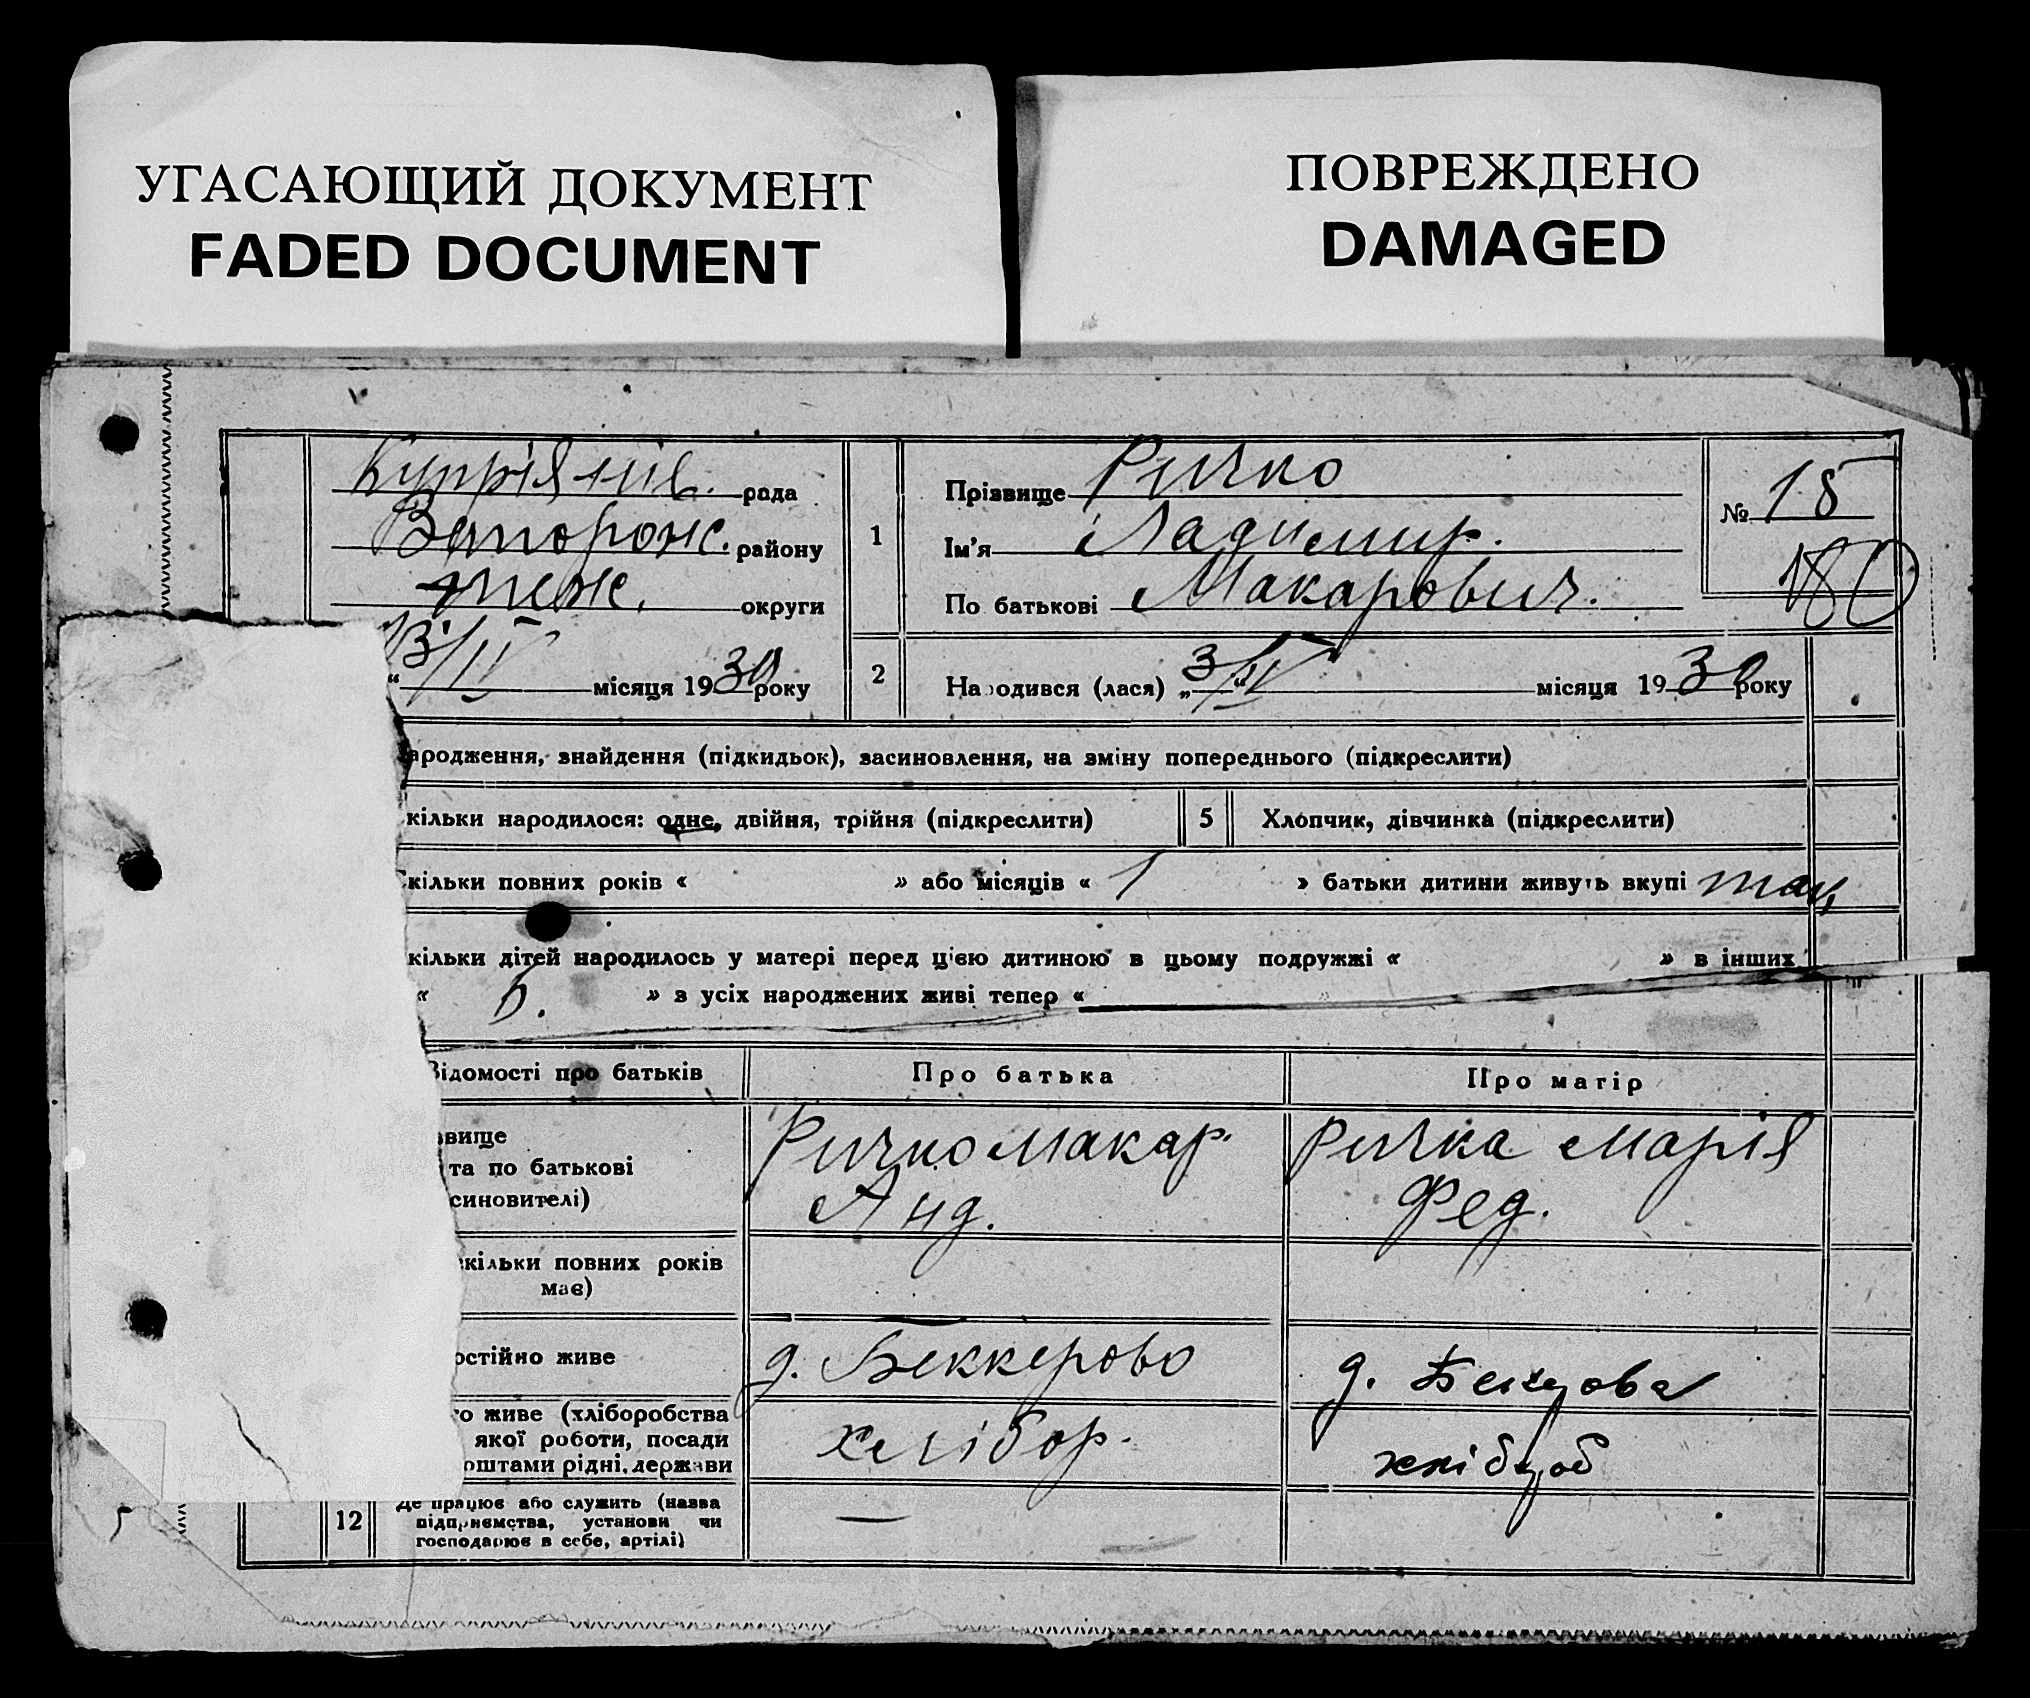 УГАСАЮЩИЙ ДОКУМЕНТ
FADED DOCUMENT
ПОВРЕЖДЕНО
DAMAGED
Купріянів. рада
Запорож. району
теж. округи
13/IV місяця 1930 року
1
Прізвище Ричко
Ім'я Владимир.
По батькові Макарович.
№ 18
180
2
Народився (лася) „3/IV“ місяця 1930 року
ародження, знайдення (підкидьок), засиновлення, на зміну попереднього (підкреслити)
кільки народилося: одне, двійня, трійня (підкреслити)
5 Хлопчик, дівчинка (підкреслити)
кільки повних років « » або місяців « 1 » батьки дитини живуть вкупі так,
кільки дітей народилось у матері перед цією дитиною в цьому подружжі « » в інших
« 5. » з усіх народжених живі тепер «
Відомості про батьків
Про батька
Про матір
звище
та по батькові
синовителі)
Ричко Макар.
Анд.
Ричка Марія
Фед.
скільки повних років
має)
остійно живе
д. Беккерово
д.
го живе (хліборобства
якої роботи, посади
оштами рідні, держави
хлібор.
хлібороб
12
Де працює або служить (назва
підприємства, установи чи
господарює в себе, артілі)
—